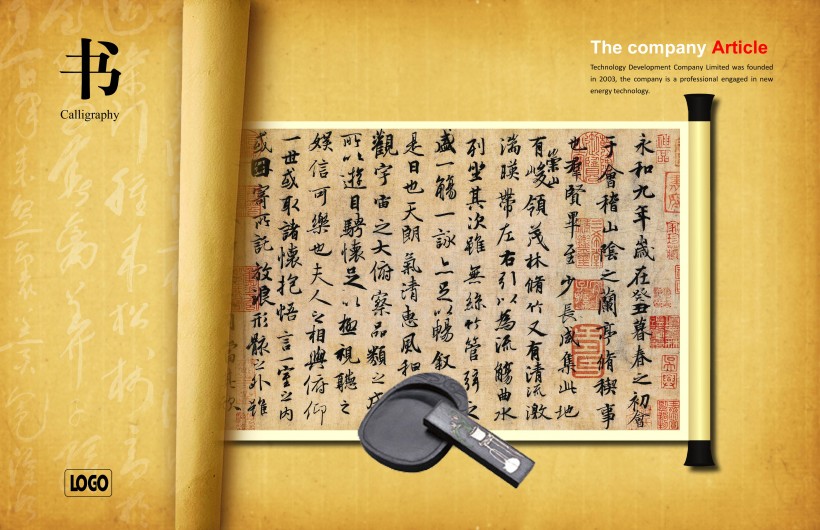 书
Calligraphy
The company Article
Technology Development Company Limited was founded
in 2003, the company is a professional engaged in new
energy technology.
永和九年歲在癸丑暮春之初會
于會稽山陰之蘭亭脩稧事
也羣賢畢至少長咸集此地
有崇山峻領茂林脩竹又有清流激
湍暎帶左右引以為流觴曲水
列坐其次雖無絲竹管弦之
盛一觴一詠亦足以暢叙
是日也天朗氣清惠風和
觀宇宙之大俯察品類之
所以遊目騁懷足以極視聽之
娛信可樂也夫人之相與俯仰
一世或取諸懷抱悟言一室之內
或因寄所託放浪形骸之外雖
LOGO